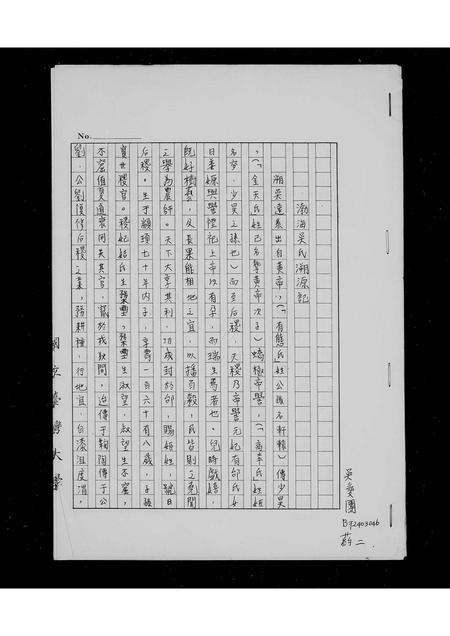 No.
渤海吳氏溯源記
溯吳遠系出自黃帝，(「有熊」氏姓公孫名軒轅) 傳少昊
，(「金天」氏姓己名摯黃帝次子) 蟜極帝嚳，(「高辛」氏姓姬
名夋，少昊之孫也) 而至后稷，夫稷乃帝嚳元妃有邰氏女
曰姜嫄與嚳禋祀上帝以有孕，而瑞生焉者也。兒時戲嬉，
既好樹藝，及長果能相地之宜，以播百穀，民皆則之堯聞
之舉為農師。天下大享其利，功成封於邰，賜姬姓，號曰
后稷。生于顓頊七十年丙子，享壽一百六十有八歲，子孫
實世稷官。稷妃姞氏生𣫭璽，𣫭璽生淑望，叔望生不窋，
不窋值夏道衰因失其官，竄於戎狄間，迨傳于鞠陶傳于公
劉，公劉復修后稷之業，務耕種，行地宜，自漆沮度渭，
國立臺灣大學
吳燮團
B92403046
薪二．